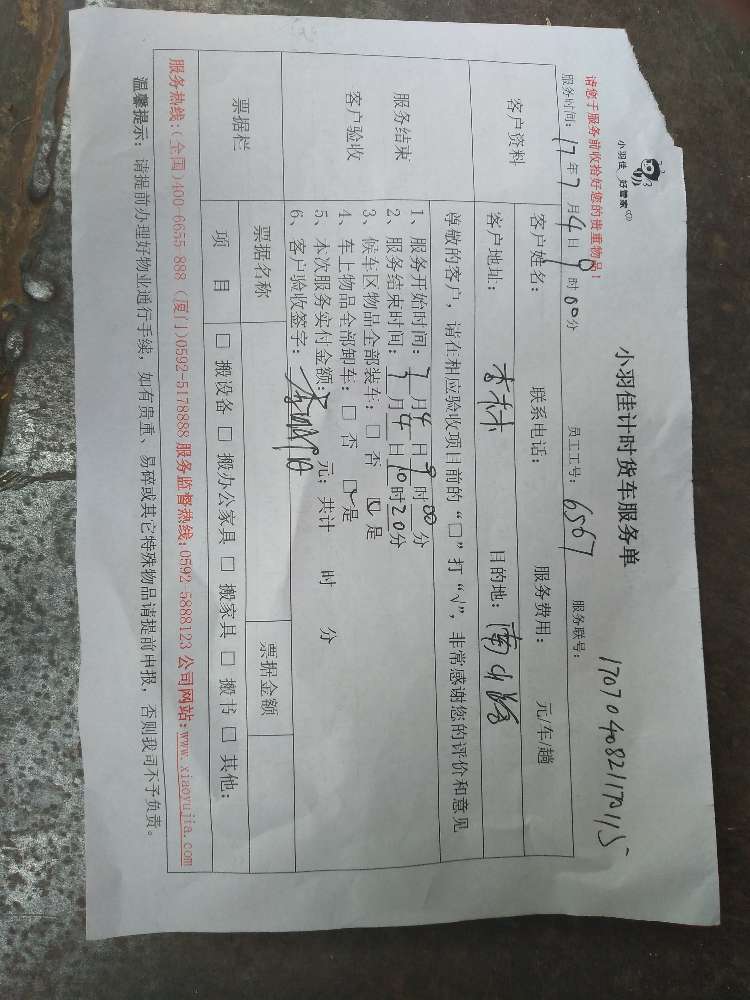 小羽佳 好管家
小羽佳计时货车服务单
请您于服务前收拾好您的贵重物品！
服务时间：17年7月4日9时00分 员工工号：6567 服务联号：
客户资料 客户姓名： 联系电话： 服务费用： 元/车/趟
客户地址： 目的地：
服务结束
客户验收
尊敬的客户，请在相应验收项目前的“□”打“√”，非常感谢您的评价和意见
1、服务开始时间：7月4日9时00分
2、服务结束时间：7月4日10时20分
3、候车区物品全部装车：□ 否 ☑ 是
4、车上物品全部卸车：□ 否 ☑ 是
5、本次服务实付金额： 元；共计 时 分
6、客户验收签字：
票据栏 票据名称 票据金额
项 目 □ 搬设备 □ 搬办公家具 □ 搬家具 □ 搬书 □ 其他：
服务热线：(全国)400-6655 888 (厦门)0592-5178888 服务监督热线：0592 5888123 公司网站：www.xiaoyujia.com
温馨提示：请提前办理好物业通行手续，如有贵重、易碎或其它特殊物品请提前申报，否则我司不予负责。